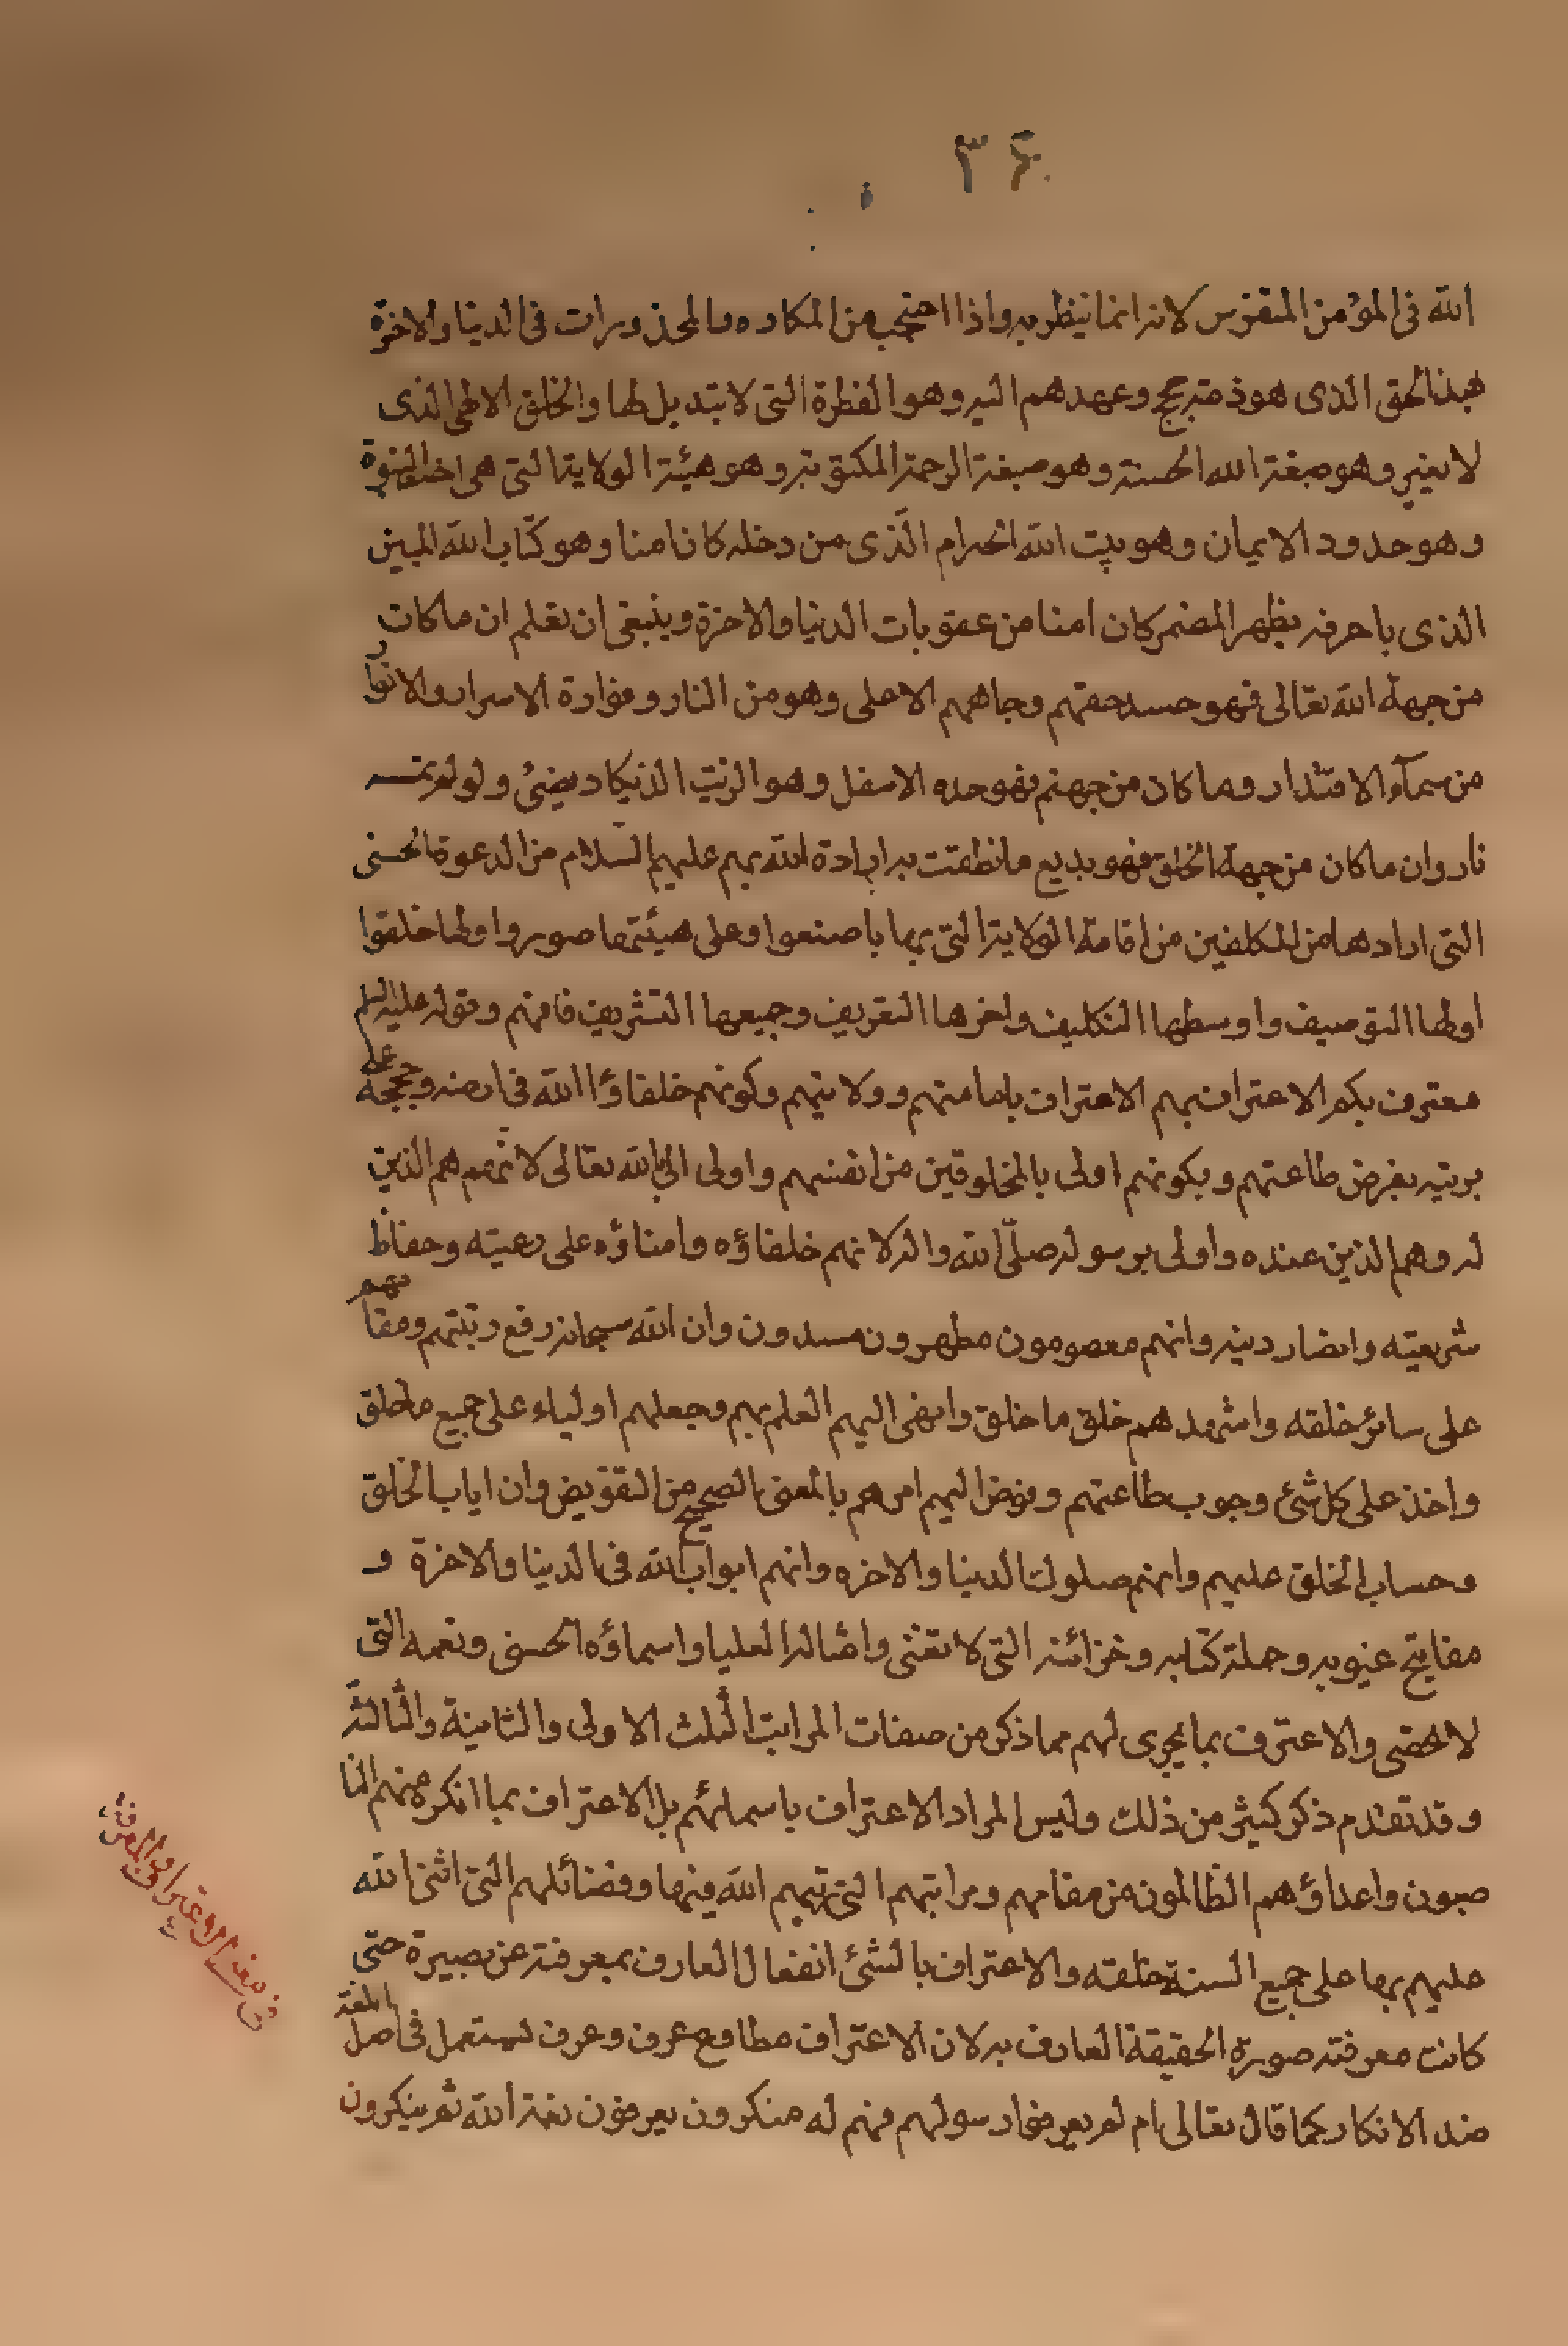 ۳۶
الله فى المؤمن المتفرس لانه انما ينظر به واذا احتجب من المكاره والمحذورات فى الدنيا والاخرة
بهذا الحق الذى هو ذمتهم ع وعهدهم اليه وهو الفطرة التى لا تبديل لها والخلق الالهى الذى
لا يغير وهو صبغة الله الحسنة وهو صبغة الرحمة المكتوبة وهو هيئة الولاية التى هى اخت النبوة
وهو حدود الايمان وهو بيت الله الحرام الّذى من دخله كان امنا وهو كتاب الله المبين
الذى باحرفه يظهر المضمر كان امنا من عقوبات الدنيا والاخرة وينبغى ان تعلم ان ما كان
من جهة الله تعالى فهو حسد حقهم وجاههم الاعلى وهو من النار وفوارة الاسرار والانوار
من سمآء الاقتدار وما كان من جهتهم فهو حده الاسفل وهو الزيت الذى يكاد يضئ ولو لم تمسسه
نار وان ما كان من جهة الخلق فهو بديع ما نطقت به ارادة الله بهم عليهم السّلام من الدعوة الحسنى
التى ارادها من المكلفين من اقامة الولاية التى بها صنعوا وعلى هيئتها صوروا ولها خلقوا
اولها التوصيف واوسطها التكليف واخرها التعريف وجميعها التشريف فافهم وقوله عليه السلم
معترف بكم الاعتراف بهم الاعتراف بامامتهم وولايتهم وكونهم خلفاؤا الله فى ارضه وحججه على
بريته بفرض طاعتهم وبكونهم اولى بالمخلوقين من انفسهم واولى بالله تعالى لانّهم هم الذين
له وهم الذين عنده واولى برسوله صلّى الله واله لانهم خلفاؤه وامناؤه على رعيته وحفاظ
شريعته وانصار دينه وانهم معصومون مطهرون مسددون وان الله سبحانه رفع رتبتهم ومقامهم
على سائر خلقه واشهدهم خلق ما خلق وانهى اليهم العلم بهم وجعلهم اولياء على جميع ما خلق
واخذ على كل شئ وجوب طاعتهم وفوض اليهم امرهم بالمعنى الصحيح من التفويض وان اياب الخلق
وحساب الخلق عليهم وانهم ملوك الدنيا والاخره وانهم ابواب الله فى الدنيا والاخرة و
مفاتيح غيوبه وحملة كتابه وخزائنه التى لا تفنى وامثاله العليا واسماؤه الحسنى ونعمه التى
لا تحصى والاعتراف بما يجرى لهم مما ذكر من صفات المراتب الثلث الاولى والثانية والثالثة
وقد تقدم ذكر كثير من ذلك وليس المراد الاعتراف باسمائهم بل الاعتراف بما انكره منهم النا
صبون واعداؤهم الظالمون من مقامهم ومراتبهم التى رتبهم الله فيها وفضائلهم التى اثنى الله
عليهم بها على جميع السنة خلقه والاعتراف بالشئ انفعال العارف بمعرفته عن بصيرة حتى
كانت معرفته صورة الحقيقة العارف به لان الاعتراف مطاوع عرف وعرف تستعمل فى اصل اللغة
ضد الانكار كما قال تعالى ام لم يعرفوا رسولهم فهم له منكرون يعرفون نعمة الله ثم ينكرون
فى معنى الاعتراف والمعرفة